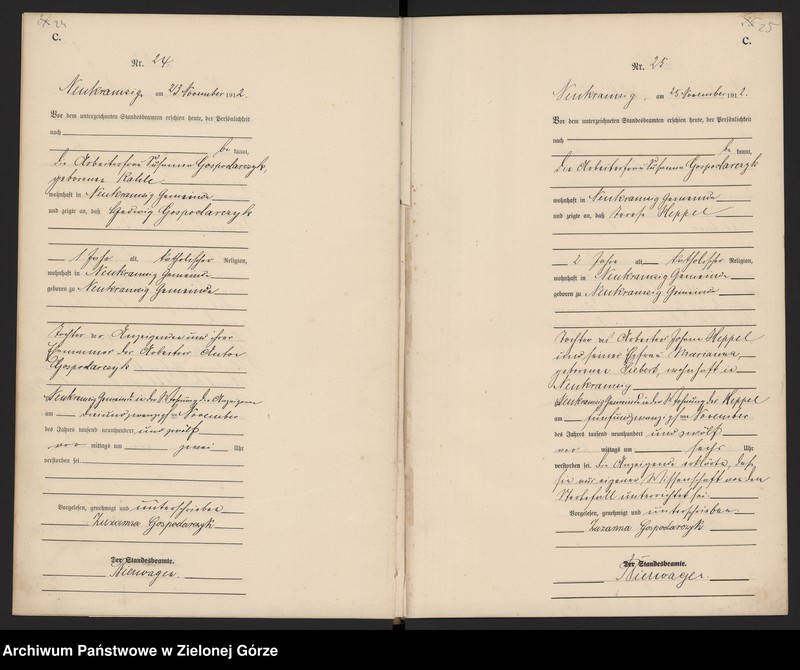 24
C.
Nr. 24.
Neukramzig, am 23. November 1912.
Vor dem unterzeichneten Standesbeamten erschien heute, der Persönlichkeit
nach
be kannt,
die Arbeiterfrau Susanna Gospodarczyk,
geborene Kahle
wohnhaft in Neukramzig Gemeinde
und zeigte an, daß Hedwig Gospodarczyk
1 Jahr alt, katholischer Religion,
wohnhaft in Neukramzig Gemeinde
geboren zu Neukramzig Gemeinde
Tochter der Anzeigenden und ihrer
Ehemannes des Arbeiter Anton
Gospodarczyk
Neukramzig Gemeinde in der Wohnung der Anzeigenden
am dreiundzwanzigsten November
des Jahres tausend neunhundert und zwölf
vor mittags um zwei Uhr
verstorben sei.
Vorgelesen, genehmigt und unterschrieben
Zuzanna Gospodarczyk
Der Standesbeamte.
Bierwagen.
25
C.
Nr. 25
Neukramzig, am 25. November 1912.
Vor dem unterzeichneten Standesbeamten erschien heute, der Persönlichkeit
nach
be kannt,
die Arbeiterfrau Susanna Gospodarczyk
wohnhaft in Neukramzig Gemeinde
und zeigte an, daß Terese Heppel
2 Jahre alt, katholischer Religion,
wohnhaft in Neukramzig Gemeinde
geboren zu Neukramzig Gemeinde
Tochter des Arbeiters Johann Heppel
und seiner Ehefrau Marianna,
geborene Liebert, wohnhaft in
Neukramzig
Neukramzig Gemeinde in der Wohnung des Heppel
am fünfundzwanzigsten November
des Jahres tausend neunhundert und zwölf
vor mittags um sechs Uhr
verstorben sei. Die Anzeigende erklärte, daß
sie aus eigener Wissenschaft von dem
Sterbefall unterrichtet sei.
Vorgelesen, genehmigt und unterschrieben
Zuzanna Gospodarczyk
Der Standesbeamte.
Bierwagen.
Archiwum Państwowe w Zielonej Górze